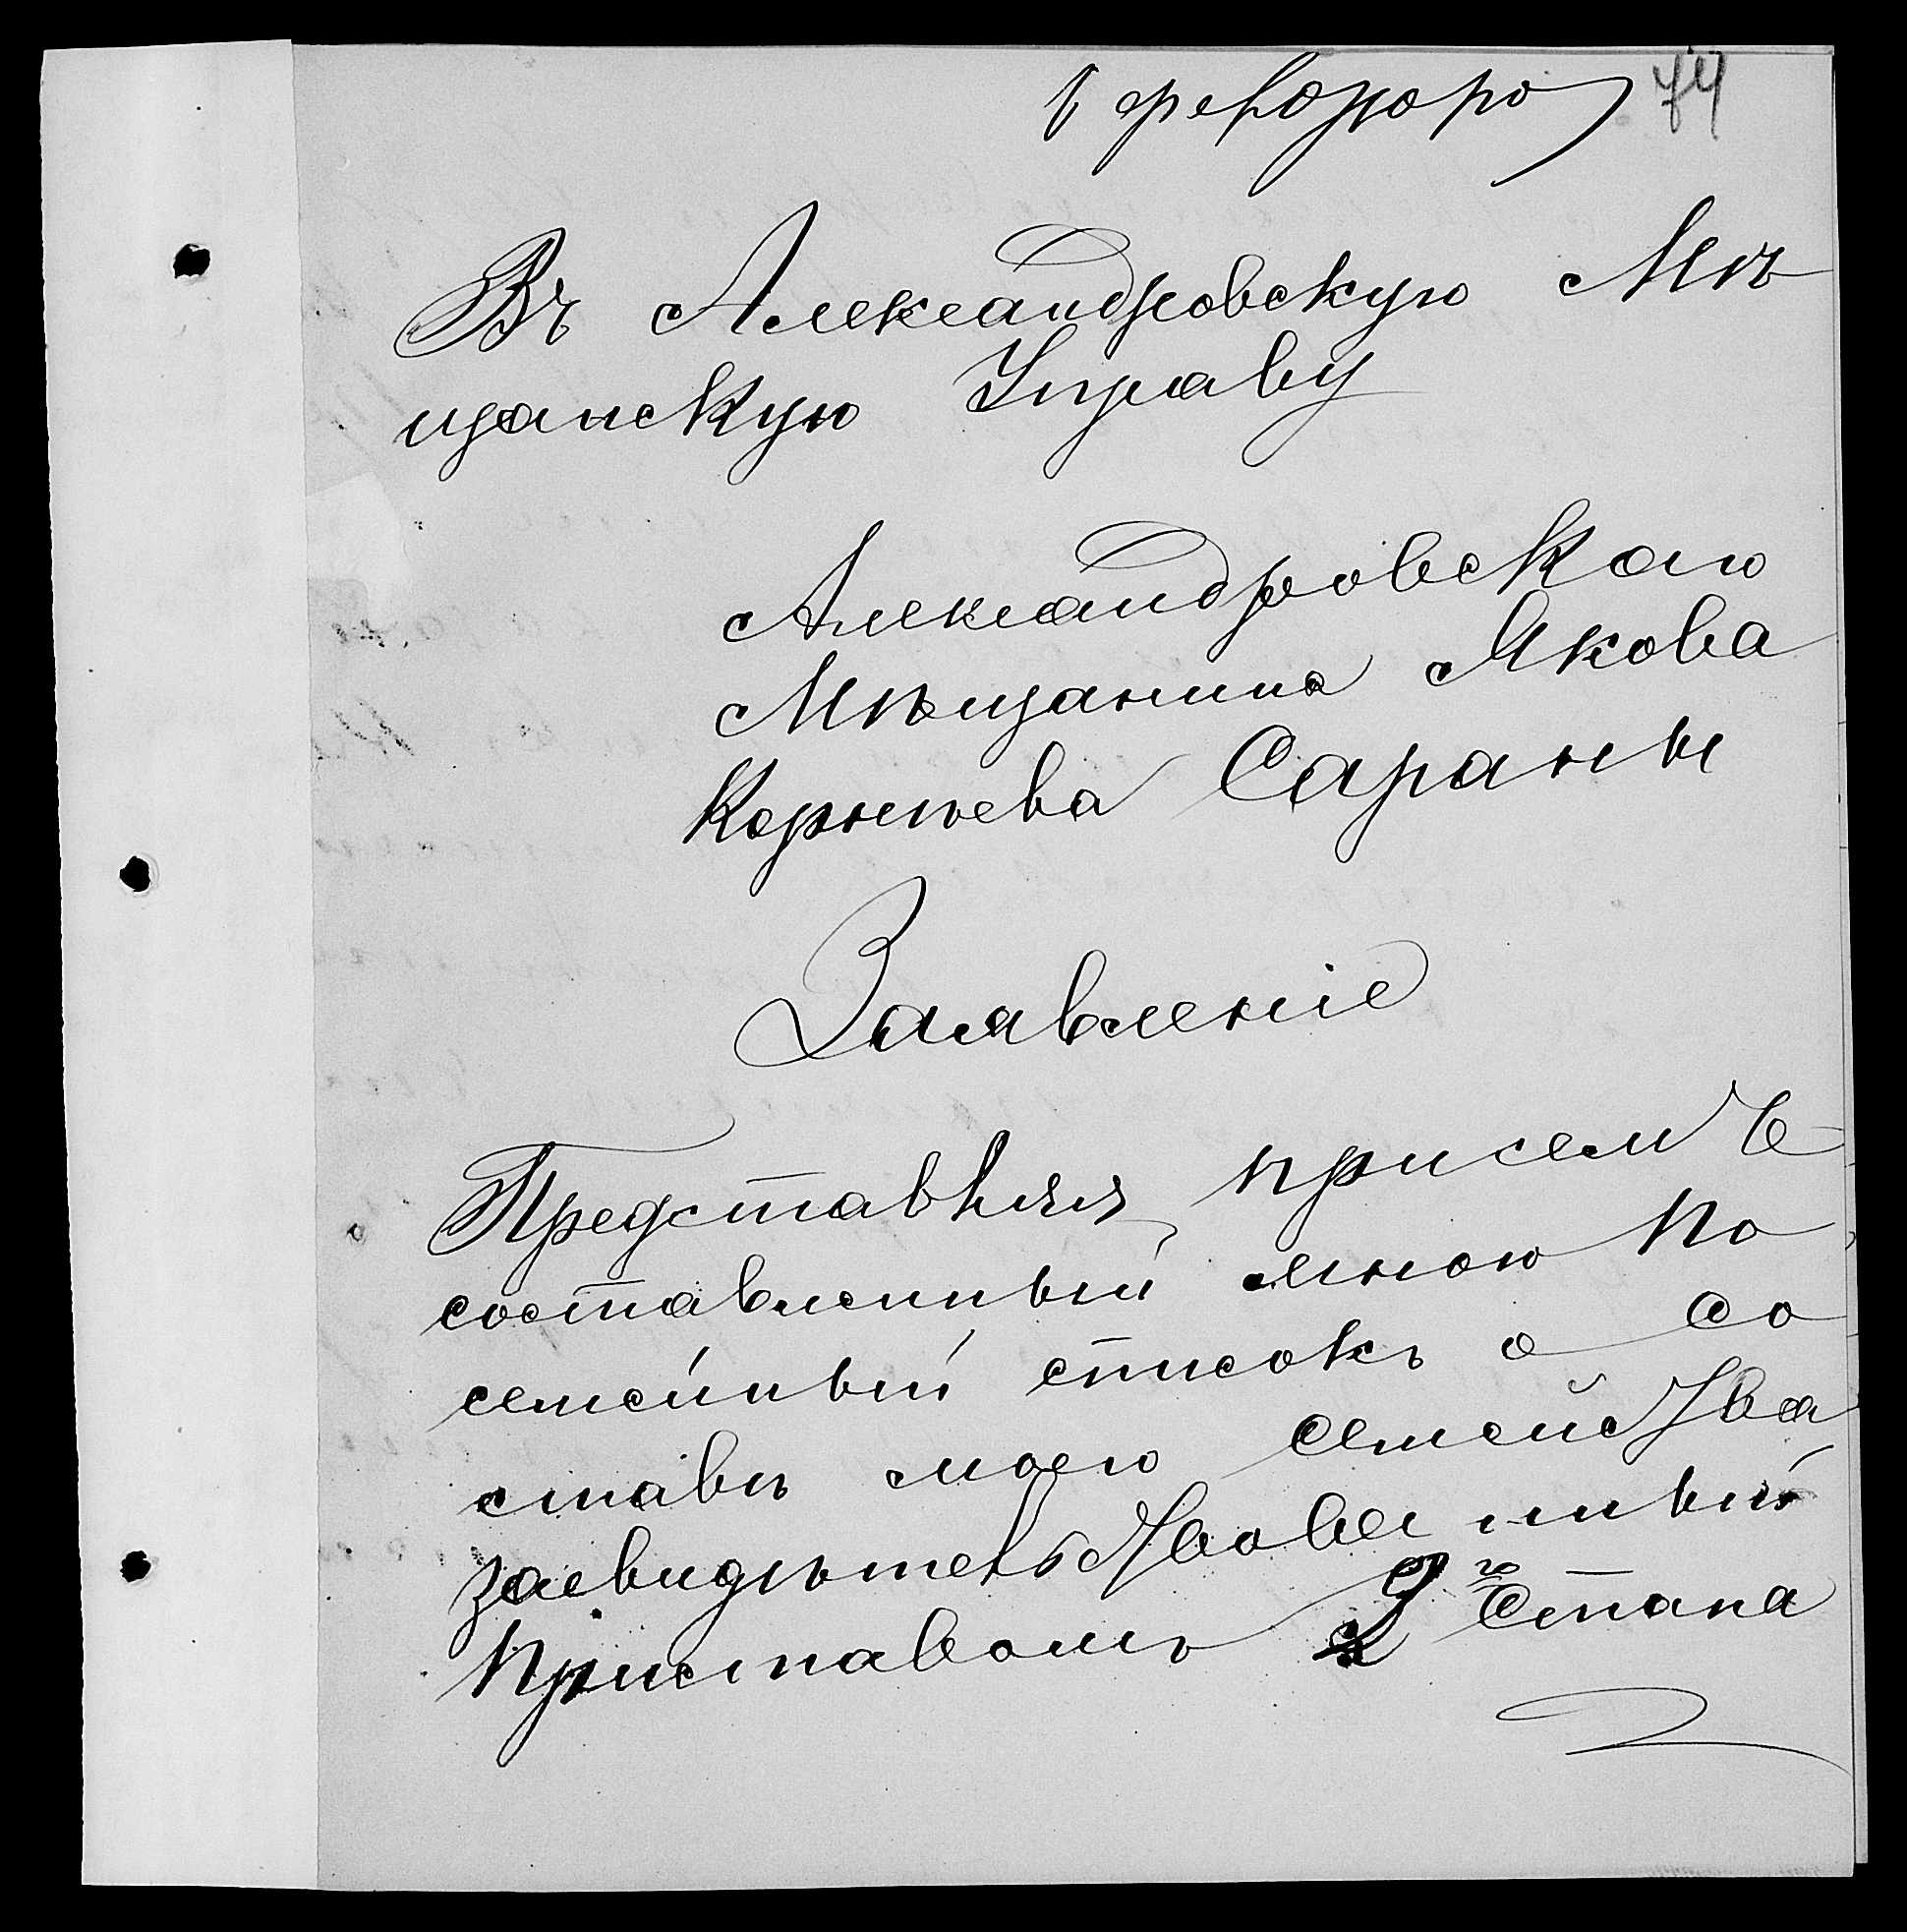 74
Въ Александровскую Мѣ
щанскую Управу
Александровскаго
Мѣщанина Якова
Корнѣева Сараны
Заявленіе
Представляя присемъ
составленный мною по
семейный списокъ о со
ставѣ моего семейства
засвидѣтельствованный
Приставомъ 2го Стана